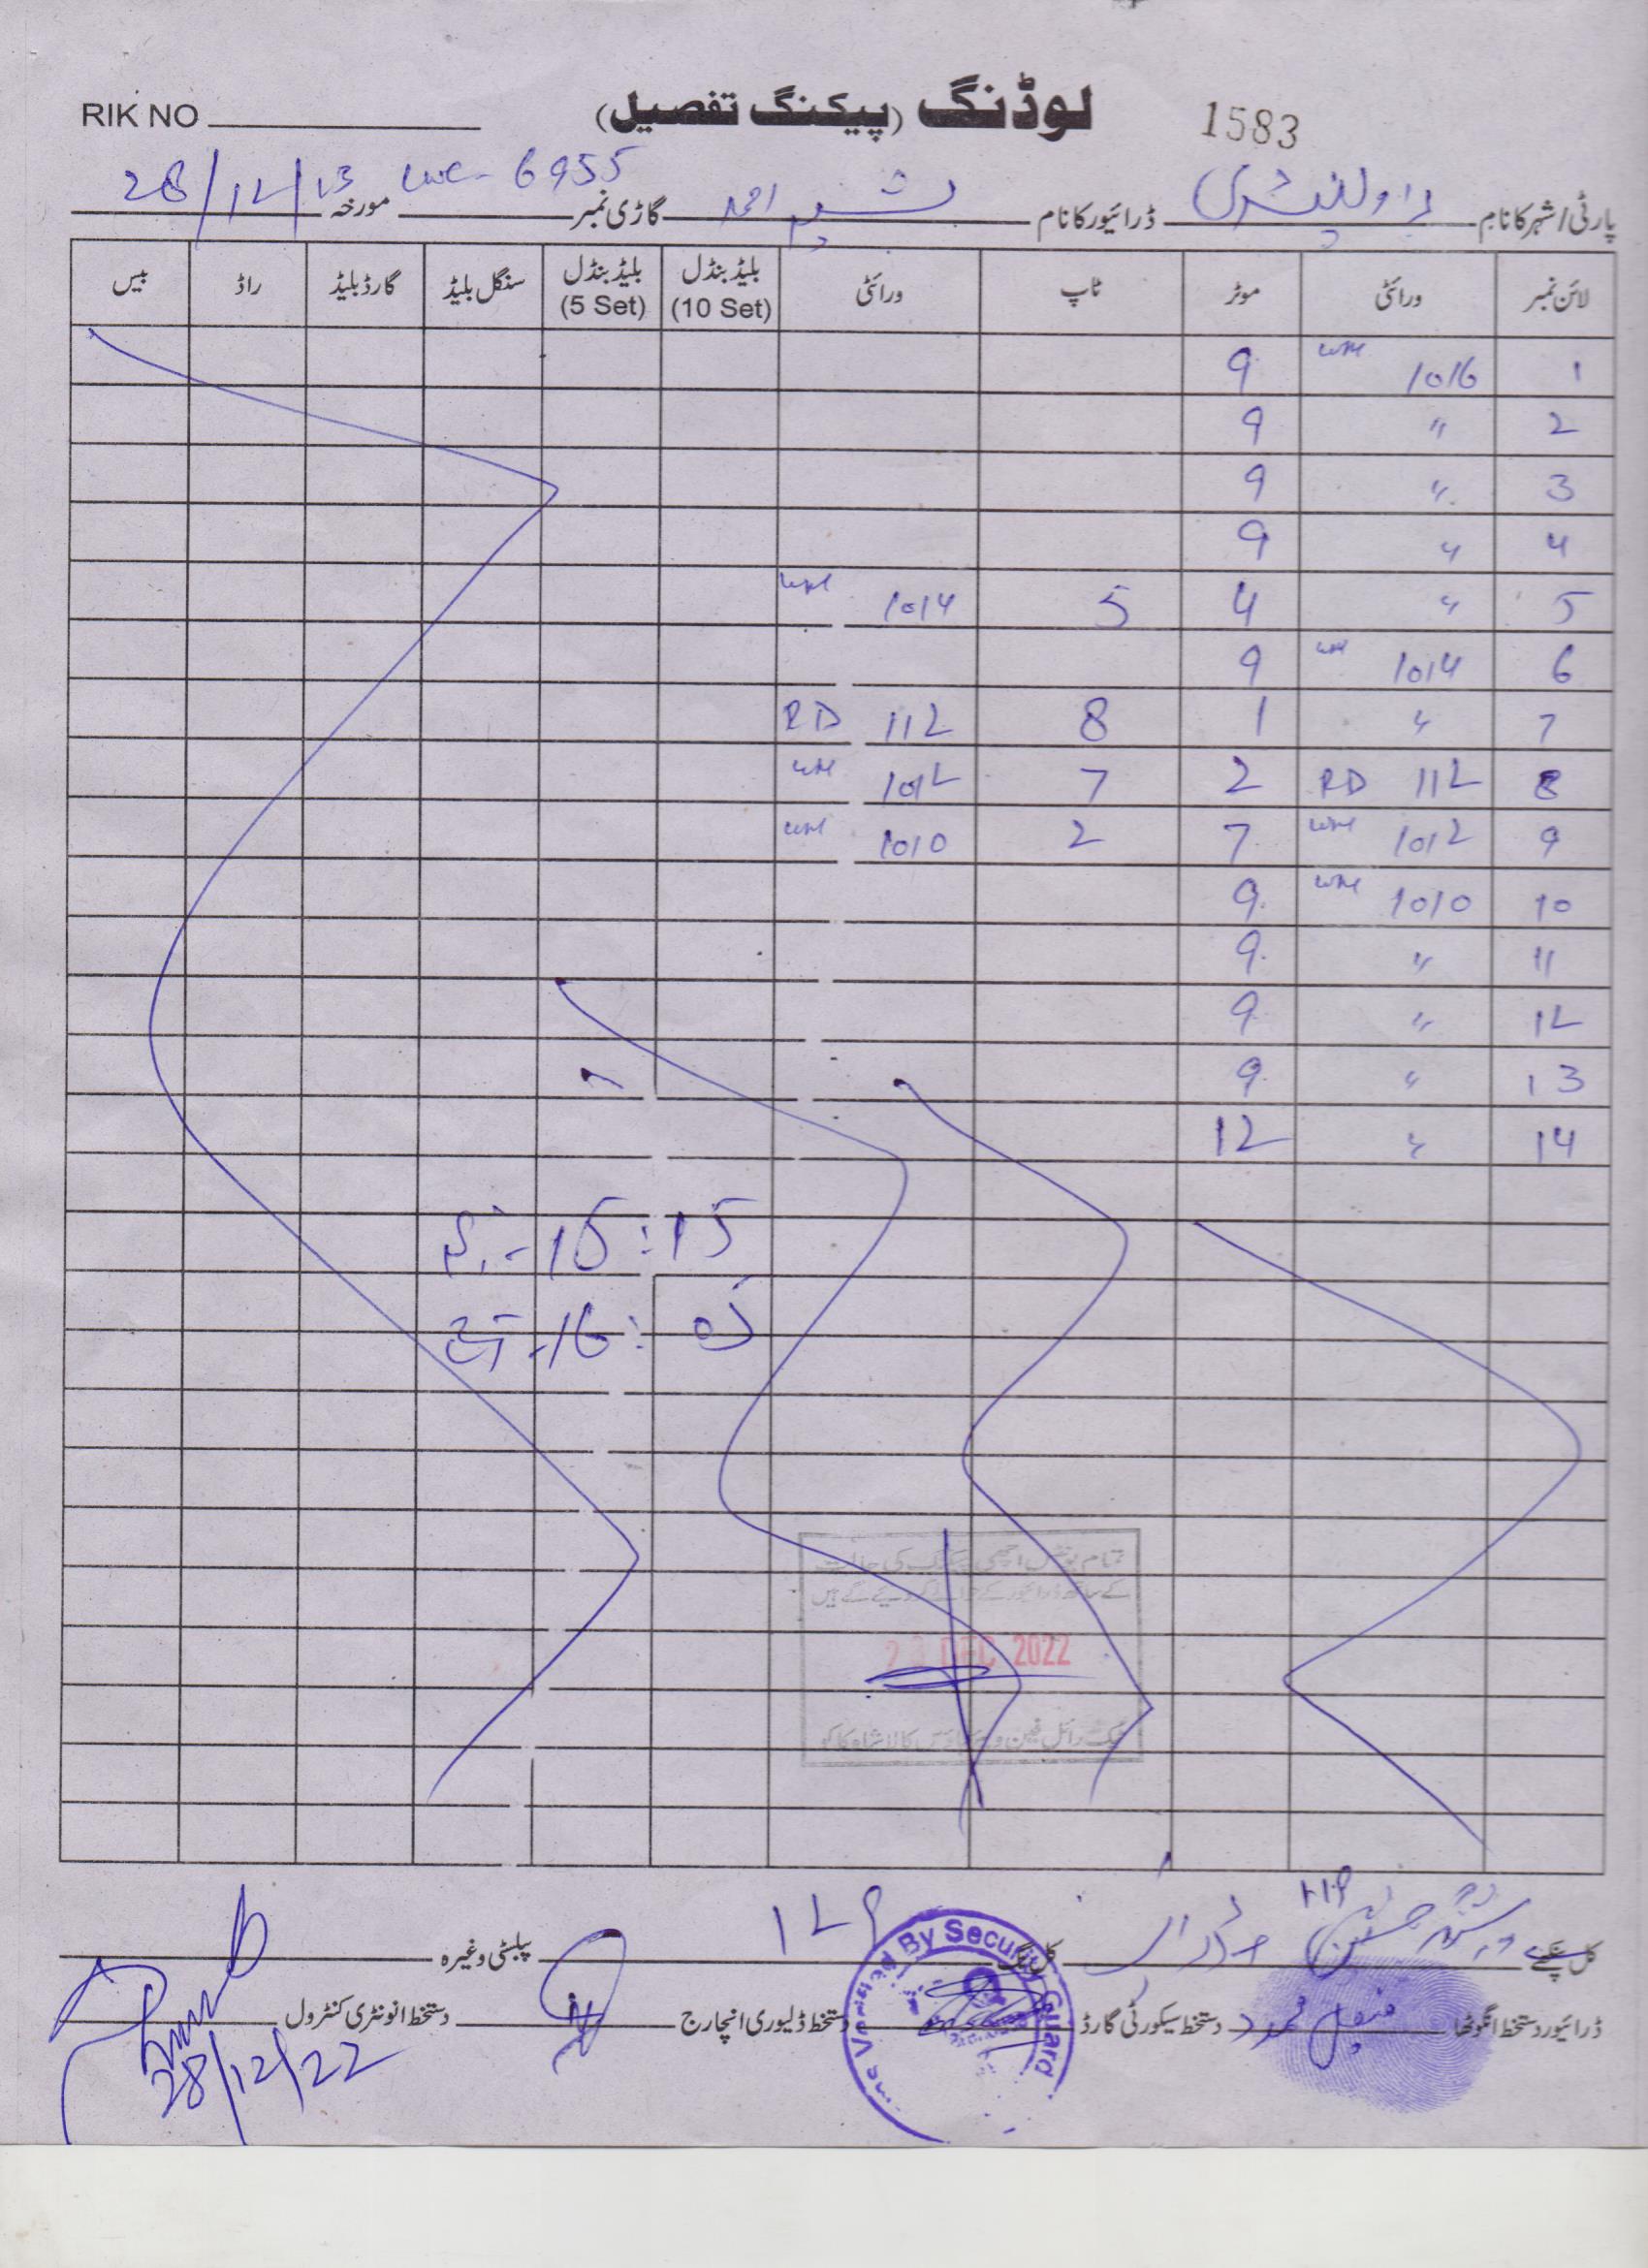 RIK NO لوڈنگ (پیکنگ تفصیل) 1583
پارٹی/شہر کا نام راولپنڈی ڈرائیور کا نام احمد گاڑی نمبر 6955 مورخہ 28/12/
لائن نمبر ورائٹی موٹر ٹاپ ورائٹی بلیڈ بنڈل (10 Set) بلیڈ بنڈل (5 Set) سنگل بلیڈ گارڈ بلیڈ راڈ بیس
1 1016 9
2 〃 9
3 〃 9
4 〃 9
5 〃 4 5 1014
6 1014 9
7 〃 1 8 RD 112
8 RD 112 2 7 1012
9 1012 7 2 1010
10 1010 9
11 〃 9
12 〃 9
13 〃 9
14 〃 12
15:15
16:
تمام یونٹس اچھی پیکنگ کی حالت
کے ساتھ ڈرائیور کے حوالے کر دیئے گئے ہیں
DEC 2022
رائل فین کالا شاہ کاکو
کل پنکھے کل نگ 129 پبلسٹی وغیرہ
ڈرائیور دستخط انگوٹھا دستخط سیکورٹی گارڈ دستخط ڈلیوری انچارج دستخط انونٹری کنٹرول
Verified By Security Guard
28/12/22